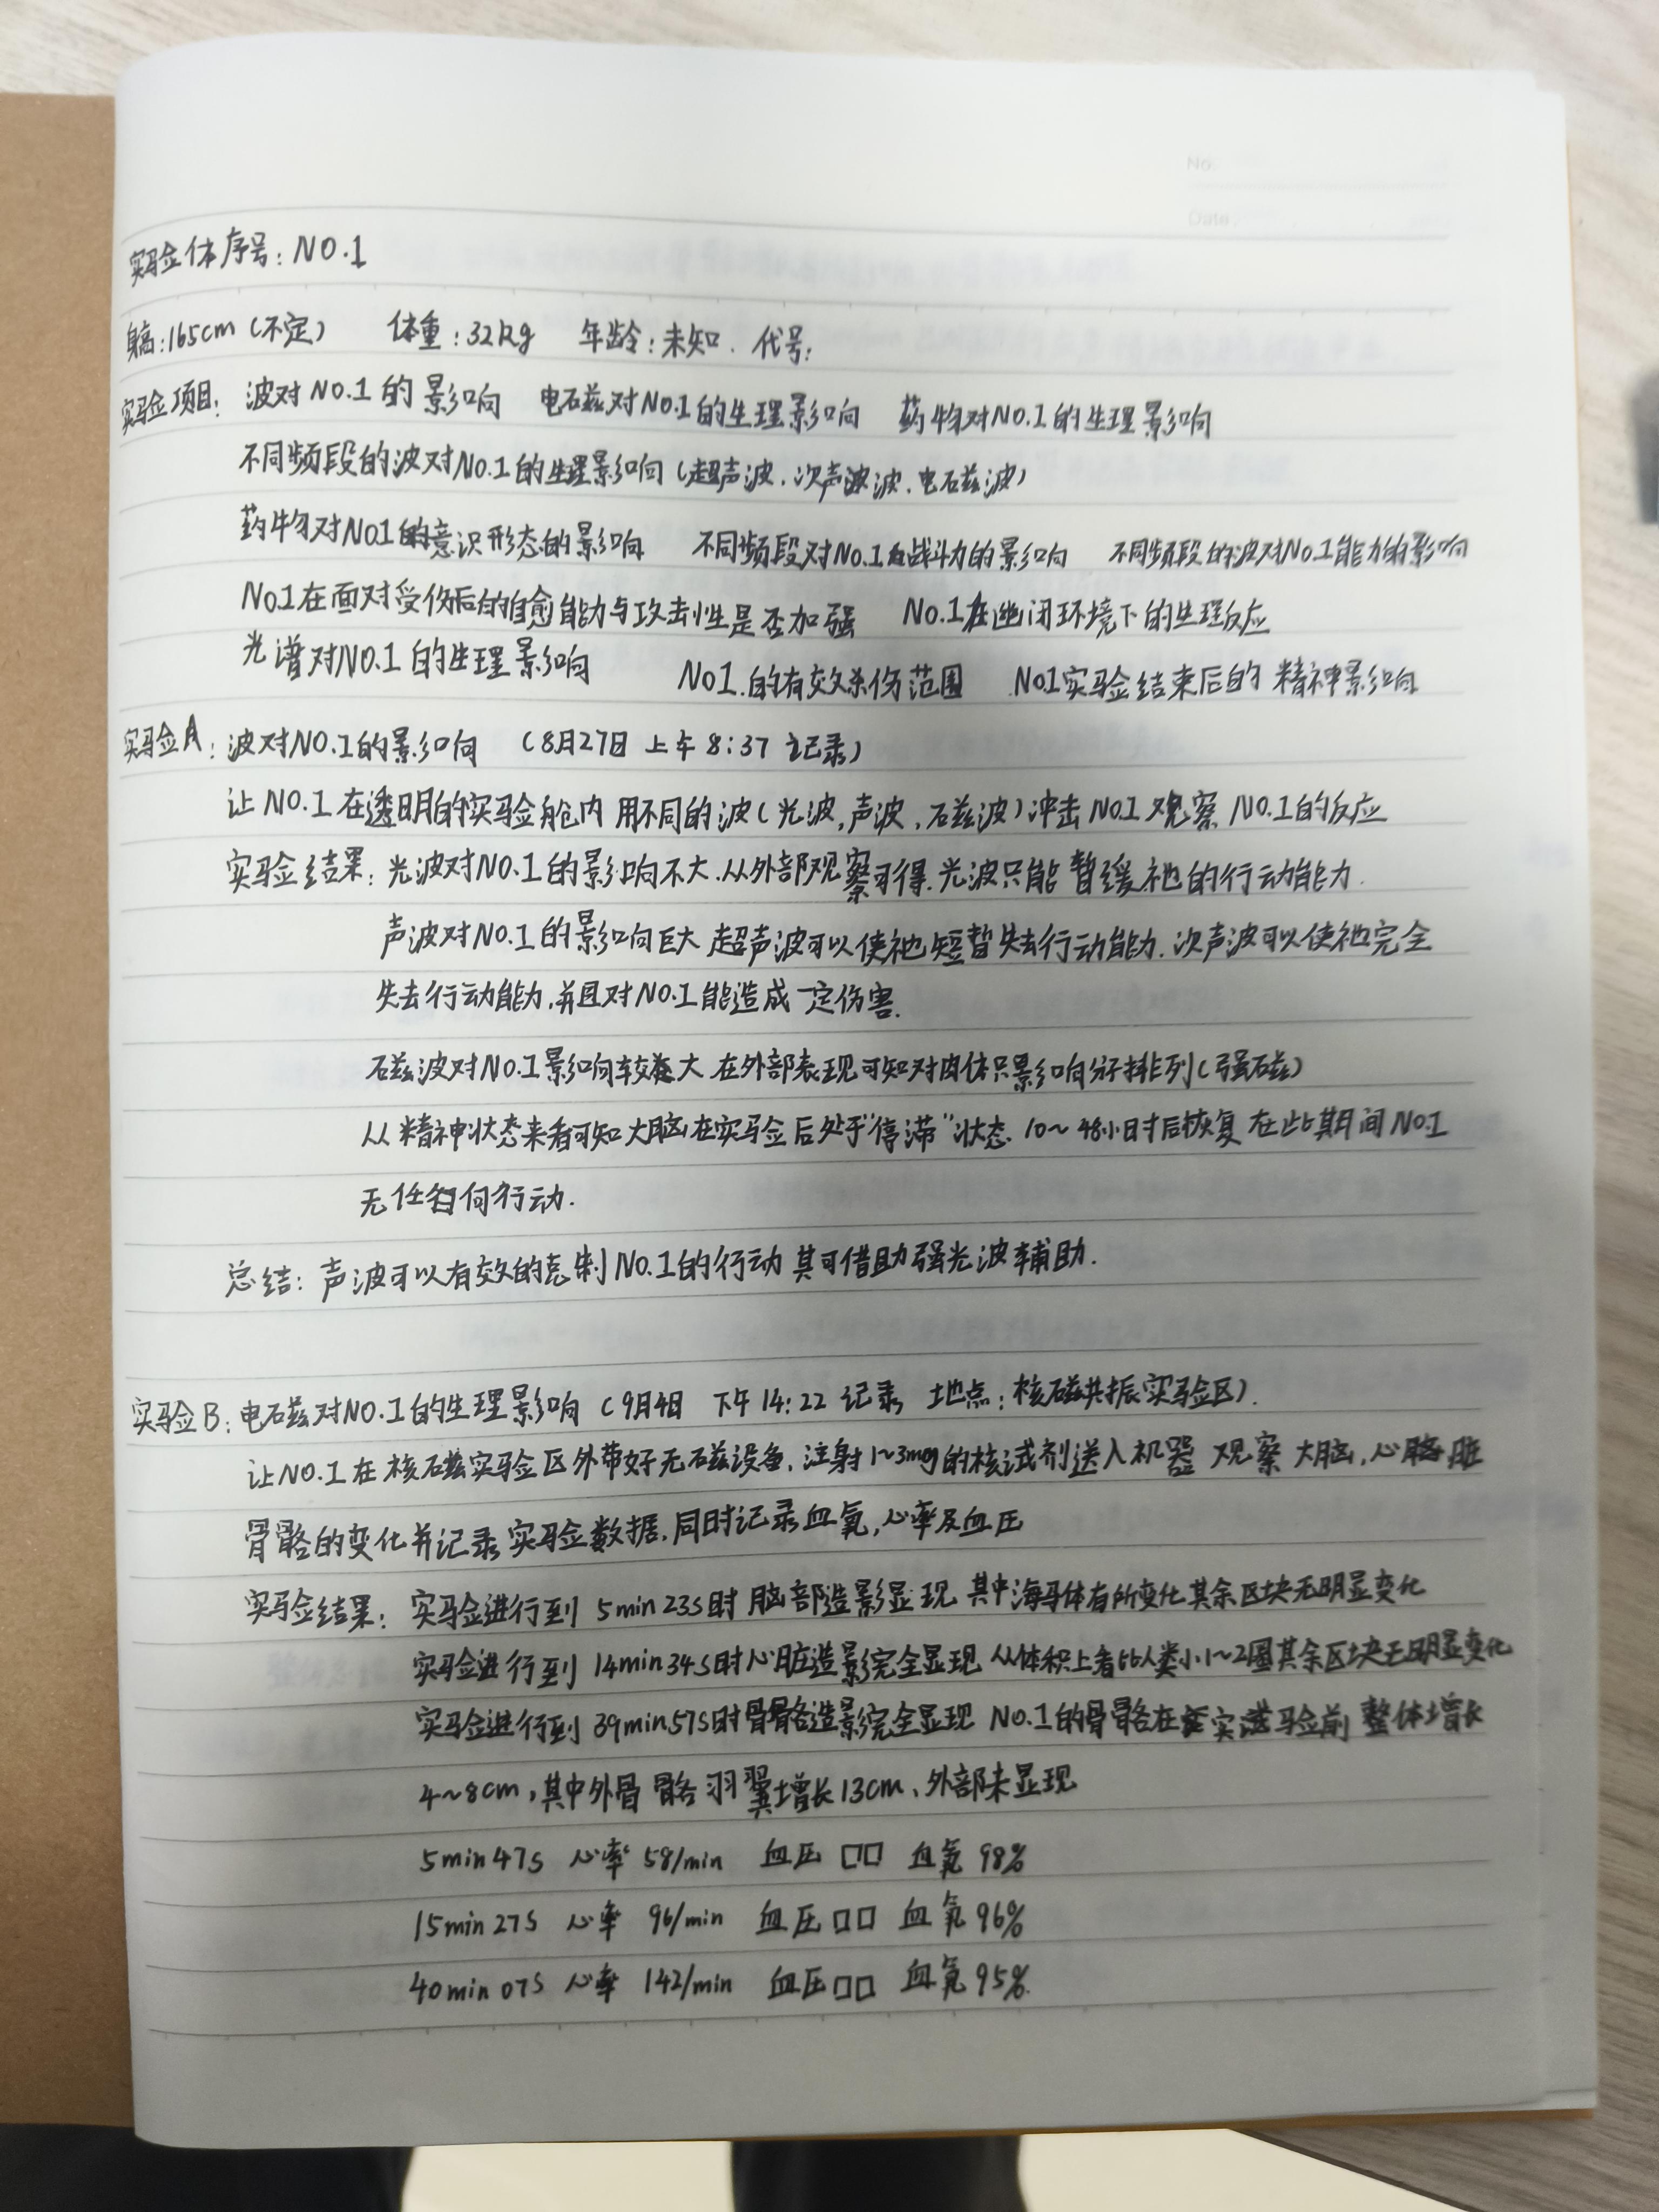 No.
Date
实验体序号：NO.1
身高：165cm（不定） 体重：32kg 年龄：未知． 代号：
实验项目：波对NO.1的影响 电磁对NO.1的生理影响 药物对NO.1的生理影响
不同频段的波对NO.1的生理影响（超声波．次声波．电磁波）
药物对NO1的意识形态的影响 不同频段对NO.1的战斗力的影响 不同频段的波对NO.1能力的影响
NO1在面对受伤后的自愈能力与攻击性是否加强 NO.1在幽闭环境下的生理反应
光谱对NO.1的生理影响 NO1.的有效杀伤范围 NO1实验结束后的精神影响
实验A：波对NO.1的影响 （8月27日 上午8:37 记录）
让NO.1在透明的实验舱内 用不同的波（光波，声波，磁波）冲击NO.1 观察 NO.1的反应
实验结果：光波对NO.1的影响不大．从外部观察可得．光波只能暂缓祂的行动能力．
声波对NO.1的影响巨大 超声波可以使祂短暂失去行动能力．次声波可以使祂完全
失去行动能力，并且对NO.1能造成一定伤害．
磁波对NO.1影响较大 在外部表现可知对肉体只影响分子排列（强磁）
从精神状态来看可知大脑在实验后处于“停滞”状态 10～48小时后恢复 在此期间NO.1
无任何行动．
总结：声波可以有效的克制NO.1的行动 其可借助强光波辅助．
实验B：电磁对NO.1的生理影响（9月4日 下午14:22记录 地点：核磁共振实验区）．
让NO.1在核磁实验区外带好无磁设备，注射1～3mg的核试剂送入机器 观察 大脑，心脏
骨骼的变化并记录实验数据．同时记录血氧，心率及血压
实验结果：实验进行到 5min23s时脑部造影显现 其中海马体有所变化其余区块无明显变化
实验进行到 14min34s时心脏造影完全显现 从体积上看比人类小1～2圈其余区块无明显变化
实验进行到 39min57s时骨骼造影完全显现 NO.1的骨骼在实验前 整体增长
4～8cm，其中外骨骼羽翼增长13cm，外部未显现
5min47s 心率 58/min 血压 □□ 血氧 98%
15min27s 心率 96/min 血压□□ 血氧96%
40min07s 心率 142/min 血压□□ 血氧95%.